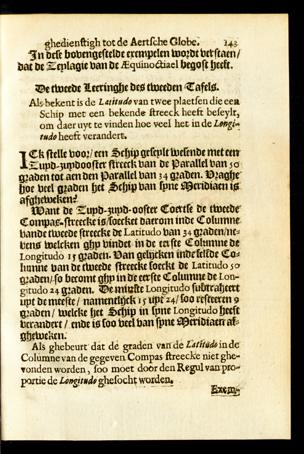 ghedienstigh tot de Aertsche Globe. 143
In dese bovengestelde exempelen wordt verstaen/
dat de Zeplagie van de Æquinoctiael begost heeft.
De tweede Leeringhe des tweeden Tafels.
Als bekent is de Latitudo van twee plaetsen die een
Schip met een bekende streeck heeft beseylt,
om daer uyt te vinden hoe veel het in de Longi-
tudo heeft verandert.
ICk stelle voor/ een Schip geseylt wesende met een
Zuyd-zuydooster streeck van de Parallel van 50
graden tot aen den Parallel van 34 graden. Vraghe
hoe veel graden het Schip van syne Meridiaen is
afgheweken?
Want de Zuyd-zuyd-ooster Coerse de tweede
Compas-streecke is/soecket daerom inde Columne
vande tweede streecke de Latitudo van 34 graden/ne-
vens welcken ghy vindt in de eerste Columne de
Longitudo 15 graden. Van gelijcken inde selfde Co-
lumne van de tweede streecke soeckt de Latitudo 50
graden/so becomt ghy in de eerste Columne de Lon-
gitudo 24 graden. De minste Longitudo subtraheert
upt de meeste/ namentlijck 15 upt 24/ soo resteeren 9
graden/ welcke het Schip in syne Longitudo heeft
verandert/ ende is soo veel van syne Meridiaen af-
gheweken.
Als ghebeurt dat de graden van de Latitudo in de
Columne van de gegeven Compas streecke niet ghe-
vonden werden, soo moet door den Regul van pro-
portie de Longitudo ghesocht worden.
Exem-